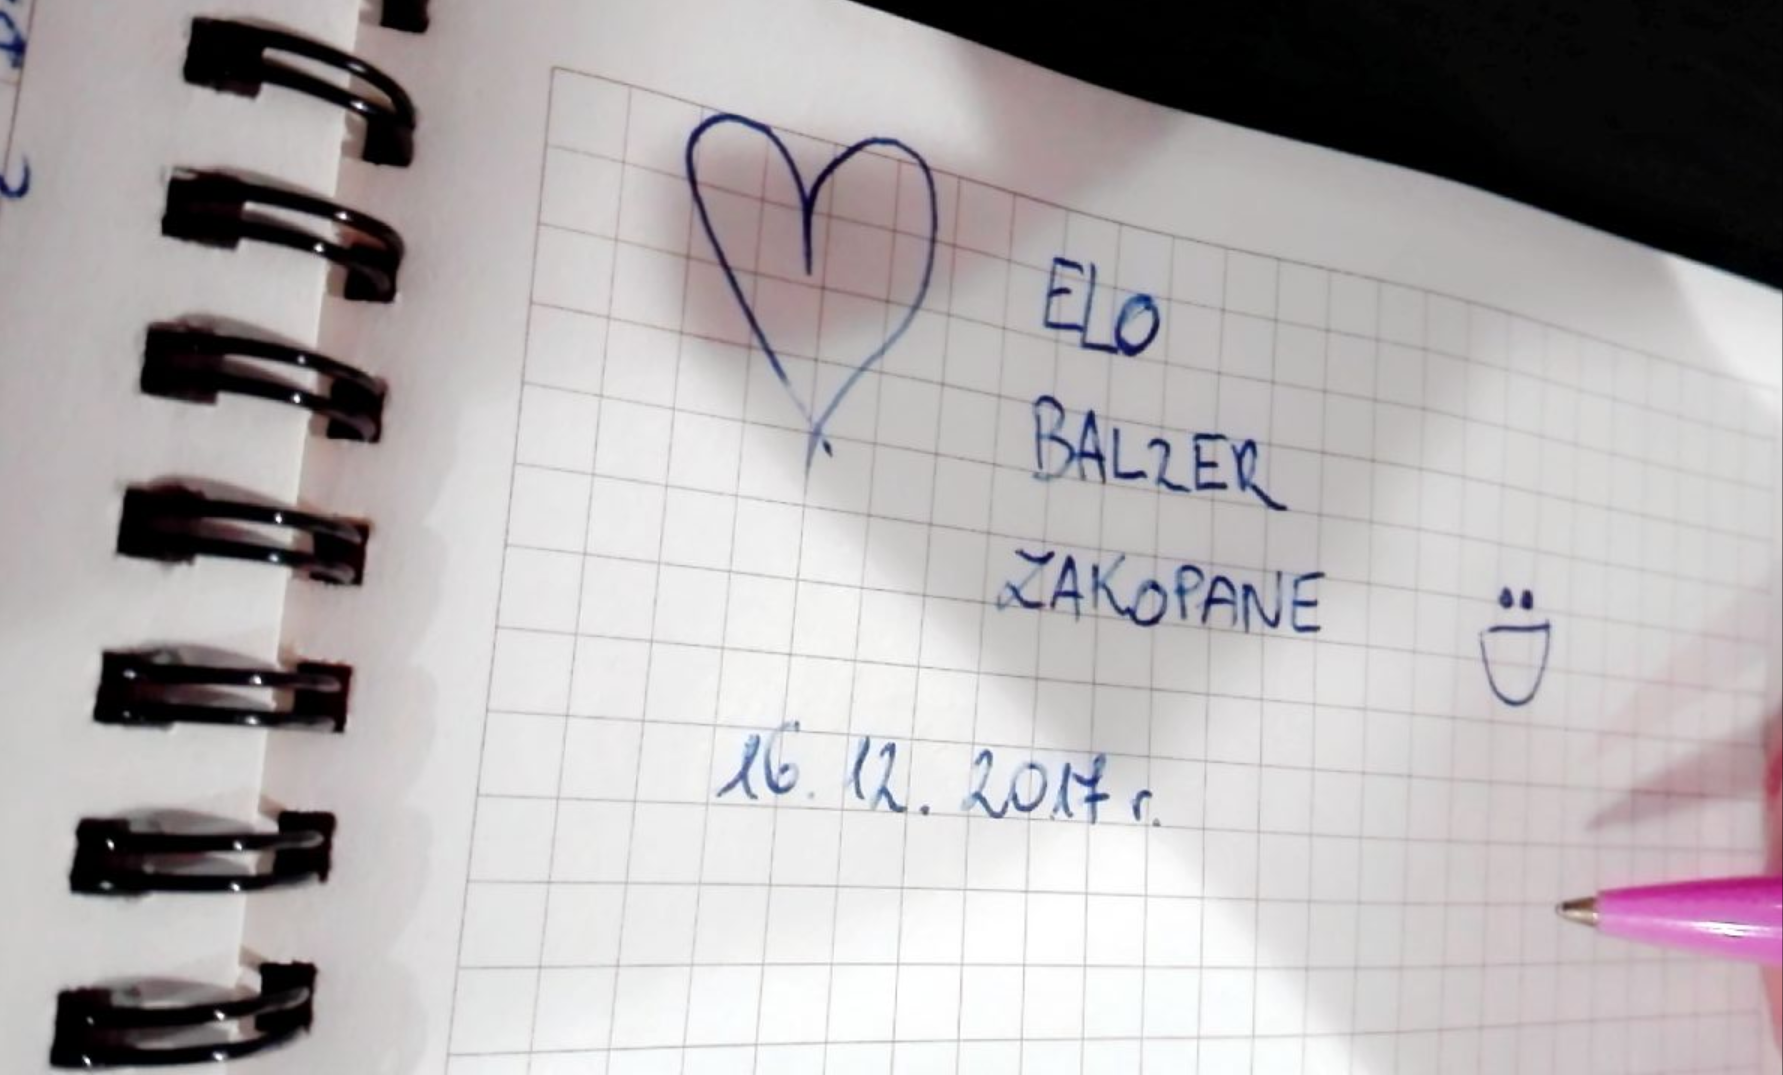 ELO
BALZER
ZAKOPANE
16. 12. 2017 r.